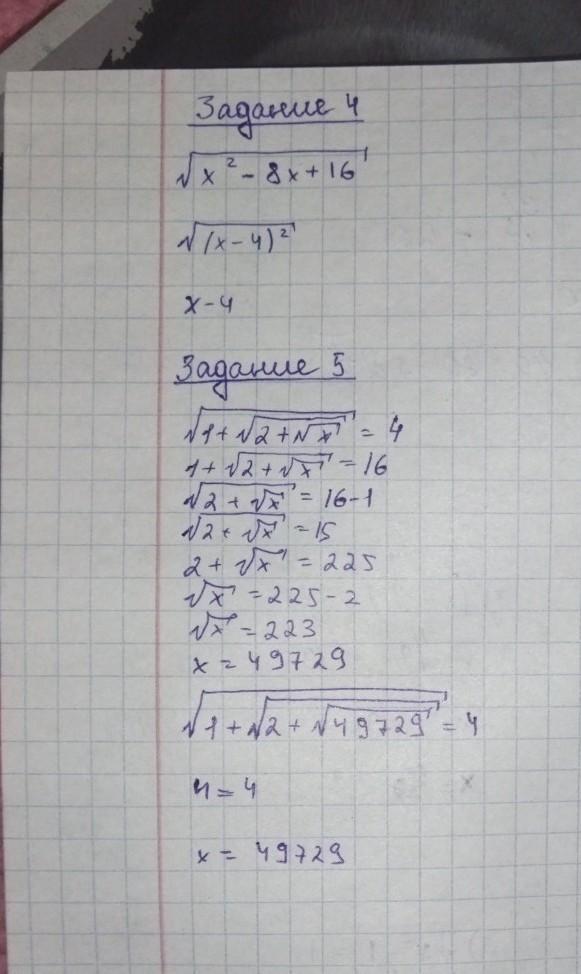 Задание 4
√(x² - 8x + 16)
√((x - 4)²)
x - 4
Задание 5
√(1 + √(2 + √x)) = 4
1 + √(2 + √x) = 16
√(2 + √x) = 16 - 1
√(2 + √x) = 15
2 + √x = 225
√x = 225 - 2
√x = 223
x = 49729
√(1 + √(2 + √49729)) = 4
4 = 4
x = 49729